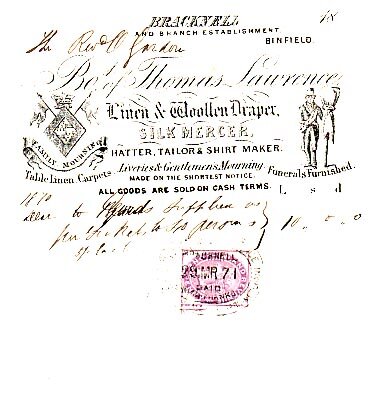 BRACKNELL
AND BRANCH ESTABLISHMENT
BINFIELD.
18
The Revd O Gordon
Bot. of Thomas Lawrence,
Linen & Woollen Draper,
SILK MERCER,
HATTER, TAILOR & SHIRT MAKER.
FAMILY MOURNING
Liveries & Gentlemen's Mourning
Table Linen Carpets
MADE ON THE SHORTEST NOTICE.
Funerals Furnished.
ALL GOODS ARE SOLD ON CASH TERMS.
L s d
1870
to Goods Supplied as
per to persons 10 0 0
BRACKNELL
29 MR 71
PAID